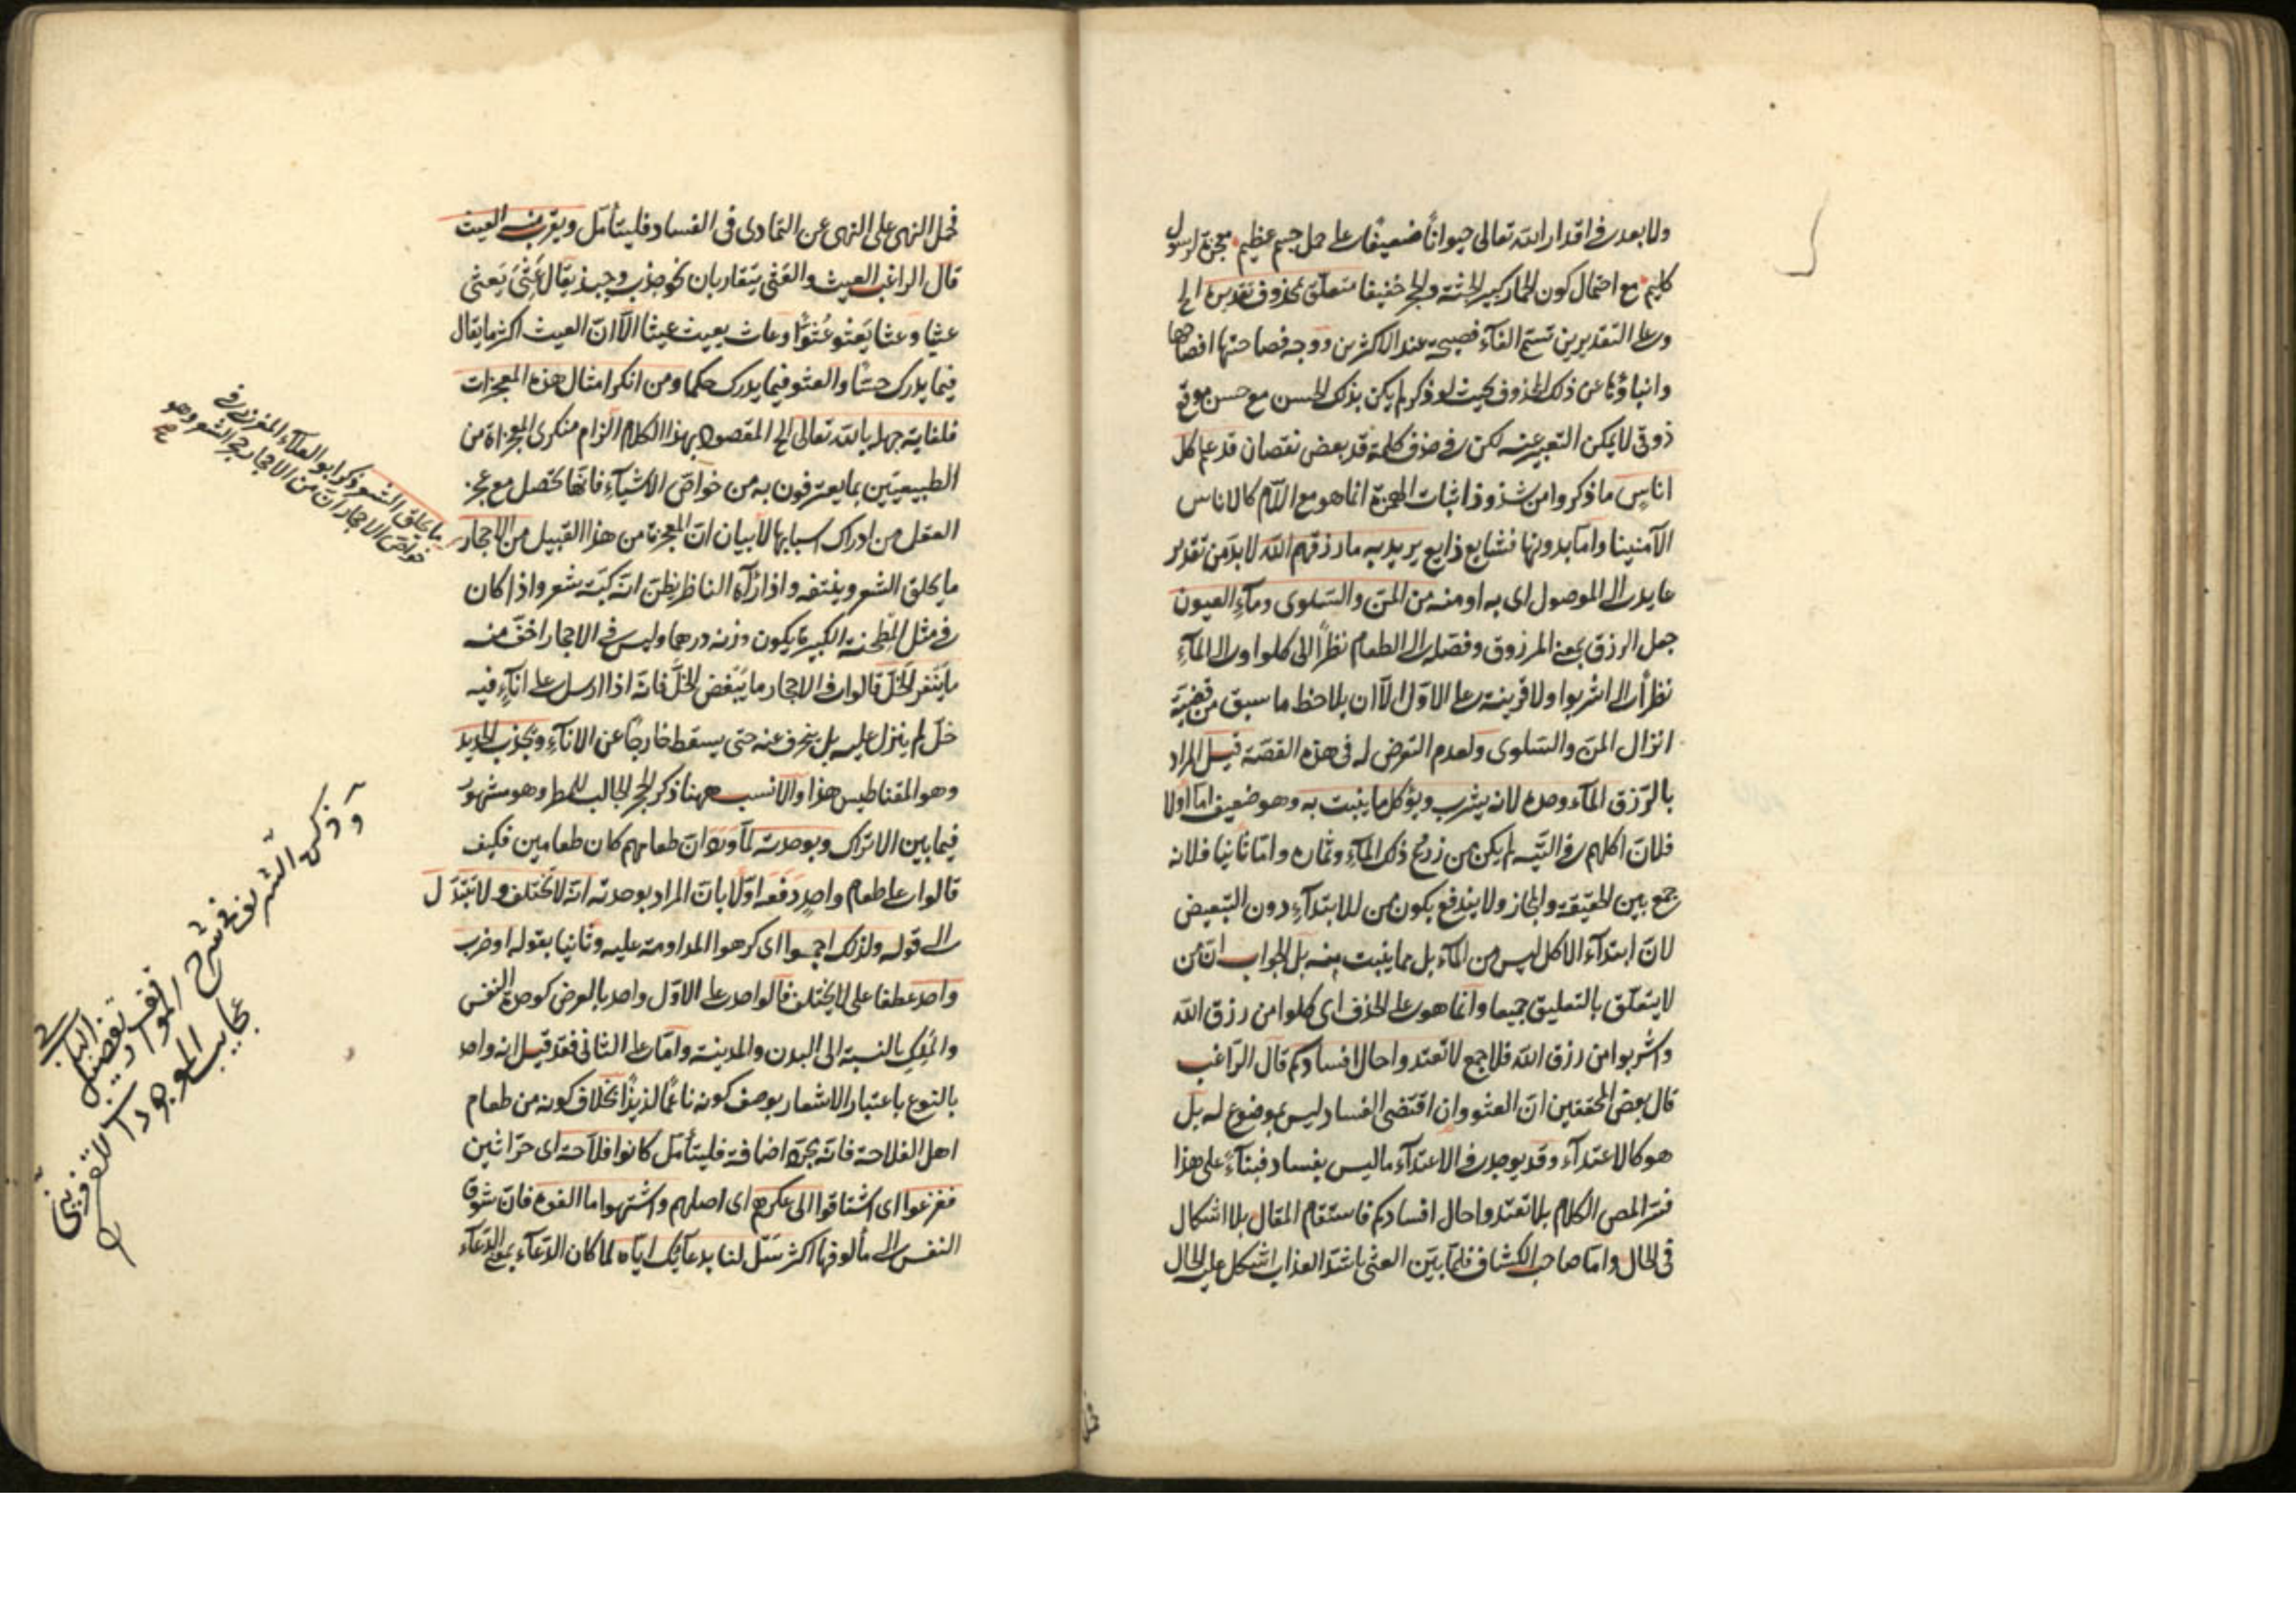 ولا بعد فى اقدار الله تعالى حيوانا ضعيفا على حمل جسم عظيم معجزة لرسول
كليم مع احتمال كون الحمار كبير الجثة والحجر خفيفا متعلق بمحذوف تقديره الخ
وعلى التقديرين تسمى الفاء فصيحة عند الاكثرين ووجه فصاحتها افصاحها
وانباؤها عن ذلك المحذوف بحيث لو ذكر لم يكن بذلك الحسن مع حسن موقع
ذوقى لا يمكن التعبير عنه لكن فى حذف كلمة قد بعض نقصان قد علم كل
اناس ما ذكروا من شذوذ اثبات الهمزة انما هو مع اللام كالاناس
الآمنينا واما بدونها فشايع ذايع يريد به ما رزقهم الله لا بد من تقدير
عايد الى الموصول اى به او منه من المن والسلوى وماء العيون
جعل الرزق بمعنى المرزوق وفصله الى الطعام نظرا الى كلوا والى الماء
نظرا الى اشربوا ولا قرينة على الاول الا ان يلاحظ ما سبق من قضية
انزال المن والسلوى ولعدم التعرض له فى هذه القصة قيل المراد
بالرزق الماء وحده لانه يشرب ويؤكل ما ينبت به وهو ضعيف اما اولا
فلان اكلهم فى التيه لم يكن من زرع ذلك الماء وثماره واما ثانيا فلانه
جمع بين الحقيقة والمجاز ولا يندفع بكون من للابتداء دون التبعيض
لان ابتداء الاكل ليس من الماء بل مما ينبت منه بل الجواب ان من
لا يتعلق بالتعليق جميعا وانما هو على الحذف اى كلوا من رزق الله
واشربوا من رزق الله فلا جمع لا تعتدوا حال افسادكم قال الراغب
قال بعض المحققين ان العثو وان اقتضى الفساد ليس بموضوع له بل
هو كالاعتداء وقد يوجد فى الاعتداء ما ليس بفساد فبناء على هذا
فسر المص الكلام بلا تعتدوا حال افسادكم فاستقام المقال بلا اشكال
فى الحال واما صاحب الكشاف فلما بين العثى باشد الفساد اشكل عليه الحال
فحمل النهى على النهى عن التمادى فى الفساد فليتأمل ويقرب منه العيث
قال الراغب العيث والعثى يتقاربان نحو جذب وجبذ يقال عثى يعثى
عثيا وعثا يعثو عثوا وعاث يعيث عيثا الا ان العيث اكثر ما يقال
فيما يدرك حسا والعثو فيما يدرك حكما ومن انكر امثال هذه المعجزات
فلغاية جهله بالله تعالى الخ المقصود بهذا الكلام الزام منكرى المعجزات من
الطبيعيين بما يعترفون به من خواص الاشياء فانها تحصل مع عجز
العقل من ادراك اسبابها لا بيان ان المعجزة من هذا القبيل من الاحجار
ما يحلق الشعر وينتفه واذا رآه الناظر يظن انه كبة شعر واذا كان
فى مثل القطنة الكبيرة يكون وزنه درهما وليس فى الاحجار اخف منه
ما ينفر الخل قالوا فى الاحجار ما يبغض الخل فانه اذا ارسل على اناء فيه
خل لم ينزل عليه بل ينحرف عنه حتى يسقط خارجا عن الاناء ويجذب الحديد
وهو المقناطيس هذا والانسب ههنا ذكر الحجر الجالب للمطر وهو مشهور
فيما بين الاتراك وبوحدته لما ورد ان طعامهم كان طعامين فكيف
قالوا على طعام واحد دفعه اولا بان المراد بوحدته انه لا تختلف ولا تتبدل
الى قوله ولذلك اجموا اى كرهوا المداومة عليه وثانيا بقوله او ضرب
واحد عطفا على لا يختلف فالواحد على الاول واحد بالعرض كوحدة النفس
والملك بالنسبة الى البدن والمدينة واما على الثانى فقد قيل انه واحد
بالنوع باعتبار الاشعار بوصف كونه ناعما لذيذا بخلاف كونه من طعام
اهل الفلاحة فانه بمجرد اضافة فليتأمل كانوا فلاحة اى حراثين
فنزعوا اى اشتاقوا الى عكرهم اى اصلهم واشتهوا ما الفوه فان شوق
النفس الى مألوفها اكثر سل لنا بدعائك اياه لما كان الدعاء بمعنى الدعاء
ما يحلق الشعر ذكر ابو العلاء فى
خواص الاحجار ان من الاحجار حجر الشعر وهو
صح
وذكر الشريف فى شرح المواقف
عجايب الموجودات للقزوينى